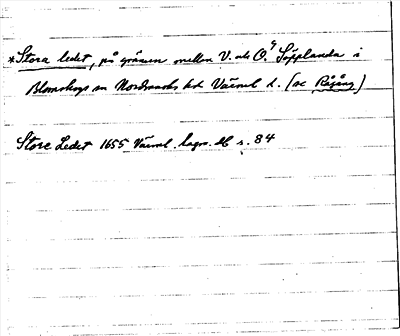 *Stora ledet, på gränsen mellan V. och Ö. Sopplanda i
Blomskogs sn Nordmarks hd Värml l. (se Rågång)
Store Ledet 1655 Värml. lagm. db s. 84